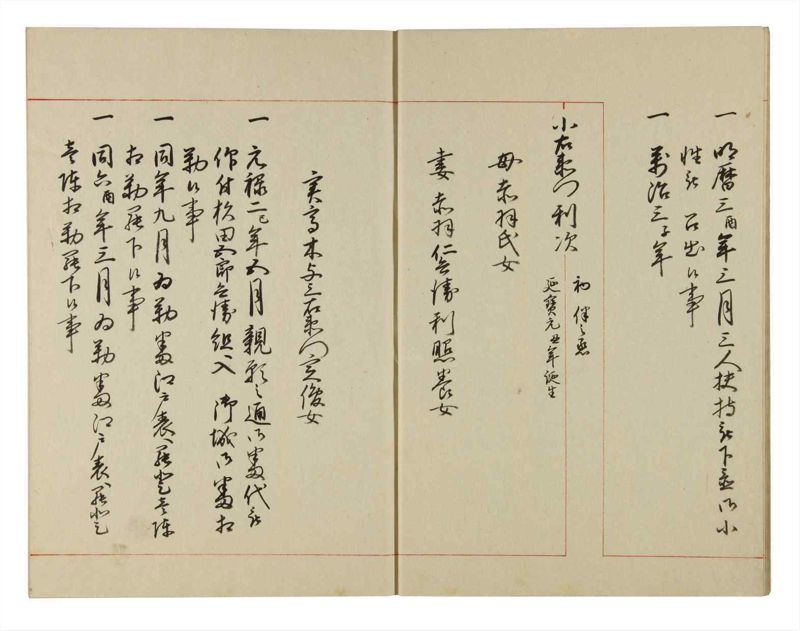 一 明暦三酉年三月三人扶持被下置御小
性被 召出候事
一 萬治三子年
小右衛門利次 初 伴之丞
延寶元丑年誕生
母 赤羽氏女
妻 赤羽仁兵衛利照養女
実高木与三右衛門定俊女
一 元禄二巳年五月親願之通御番代被
仰付杉田五郎兵衛組入 御城御番相
勤候事
一 同年九月為勤番江戸表罷登壱詰
相勤罷下候事
一 同六酉年三月為勤番江戸表罷登
壱詰相勤罷下候事